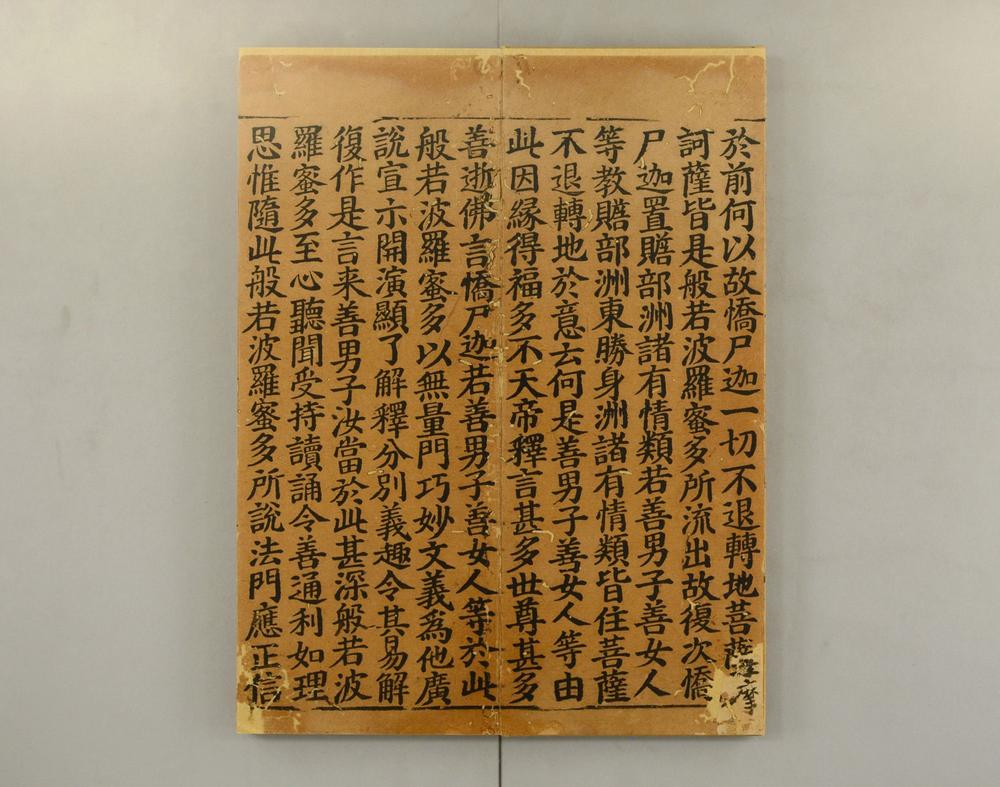 於前何以故憍尸迦一切不退轉地菩薩摩
訶薩皆是般若波羅蜜多所流出故復次憍
尸迦置贍部洲諸有情類若善男子善女人
等教贍部洲東勝身洲諸有情類皆住菩薩
不退轉地於意云何是善男子善女人等由
此因縁得福多不天帝釋言甚多世尊甚多
善逝佛言憍尸迦若善男子善女人等於此
般若波羅蜜多以無量門巧妙文義爲他廣
說宣示開演顯了解釋分別義趣令其易解
復作是言来善男子汝當於此甚深般若波
羅蜜多至心聽聞受持讀誦令善通利如理
思惟隨此般若波羅蜜多所說法門應正信